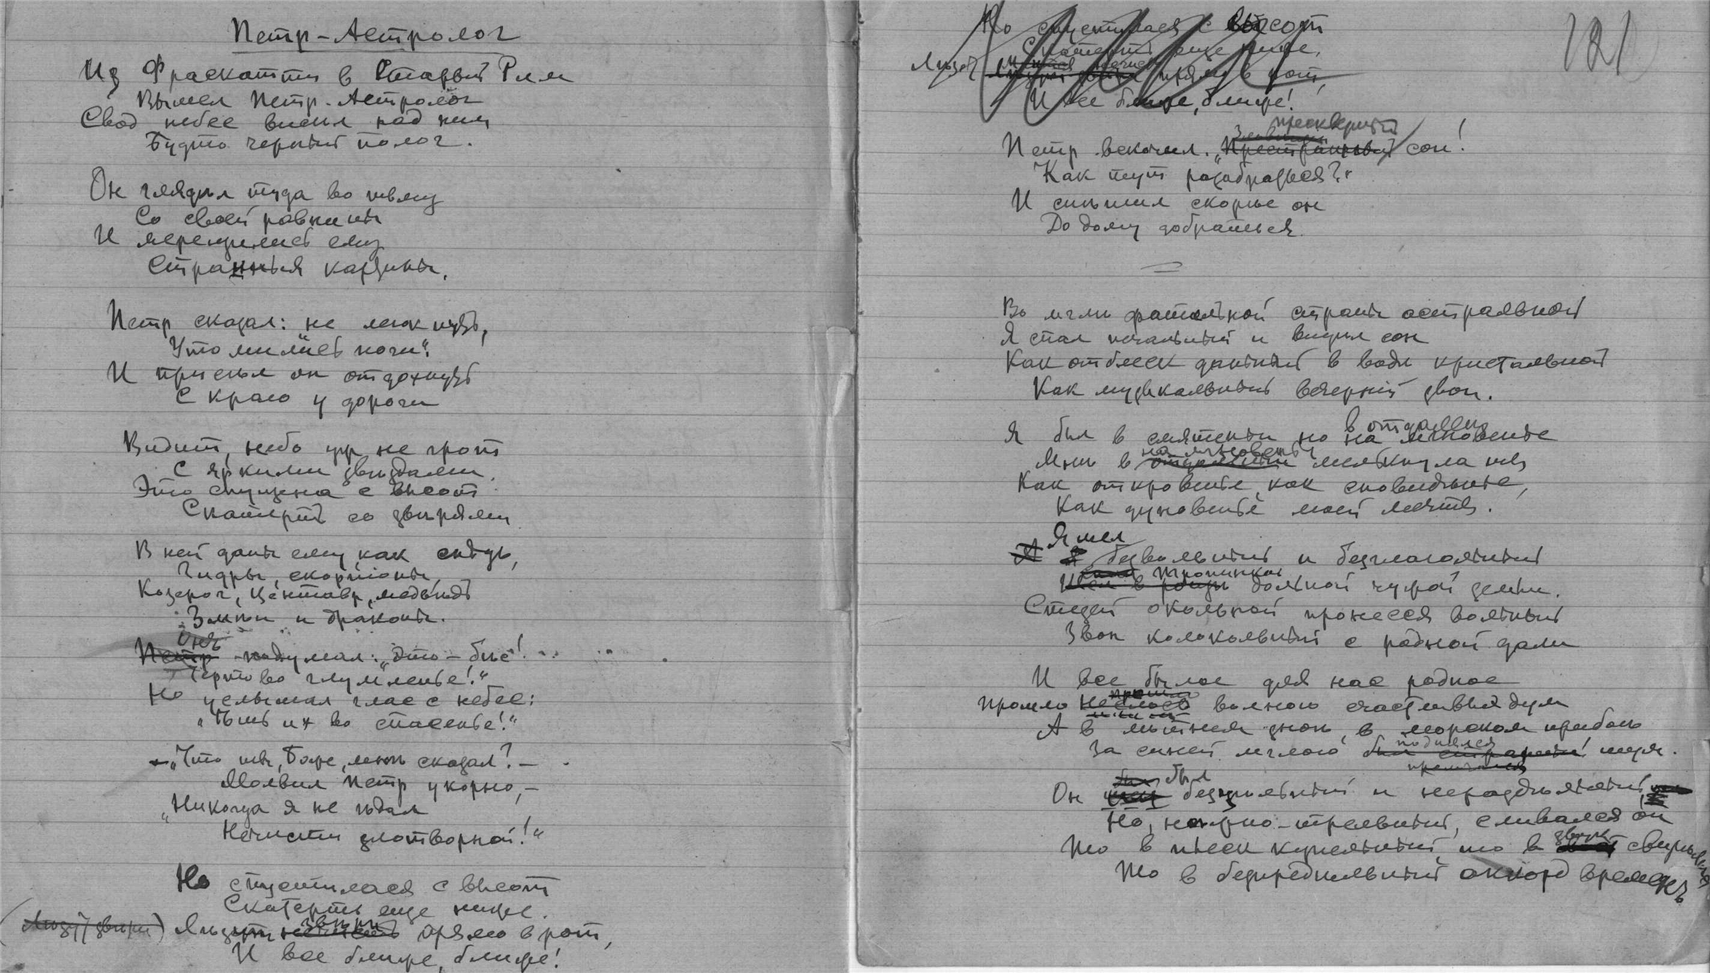 Петр-Астролог
Из Фраскатти в Старый Рим
Вышел Петр-Астролог
Свод небес висел над ним
Будто черный полог.
Он глядел туда во тьму
Со своей равнины
И мерещились ему
Странныя картины.
Петр сказал: "не маскируясь,
Утомились ноги".
И присел он отдохнуть
С краю у дороги
Видит, небо уж не грот
С яркими звездами
Это спущена с высот
Скатерть со зверями
В ней даны ему, как снедь,
Гидры, скорпионы,
Козерог, Центавр, медведь
Змеи и драконы.
Онъ
Петр подумал: "Это – бес!
Чертово глумленье!"
Но услышал глас с небес:
"Ешь их во спасенье!"
– "Что ты, Боже, мне сказал? –
Молвил Петр укорно, –
"Никогда я не едал
Нечисти злотворной!"
Но спустилася с высот
Скатерть еще ниже.
(Лезут звери) Лезут звери прямо в рот,
И все ближе, ближе!
Но спустилася с высот
Скатерть еще ниже,
Лезут прямо в рот,
И все ближе, ближе!
121
прескверный
Петр вскочил. "Престранный сон!
Как тут разобраться?"
И спешил скорее он
До дому добраться.
Во мгле фатальной страны астральной
Я спал печальный и видел сон
Как отблеск дальный в воде кристальной
Как музыкальный вечерний звон.
в отдаленьи
Я был в смятеньи но на мгновенье
на мгновенье
Мне в отдаленьи мелькнула ты
Как откровенье, как сновиденье,
Как дуновенье моей мечты.
Я шел
безвольный и безглагольный
тропинкой
дольной чужой земли.
Стезей окольной пронесся вольный
Звон колокольный с родной дали
И все былое для нас родное
прошло волною счастливых дум
А в летнем зное, в морском прибое
За синей мглою поднялся шум.
был
Он безпечальный и неразделенный,
Но, нежно-трельный, сливался он
То в песни купельный то в звуки свирельный
То в безпредельный аккорд временъ